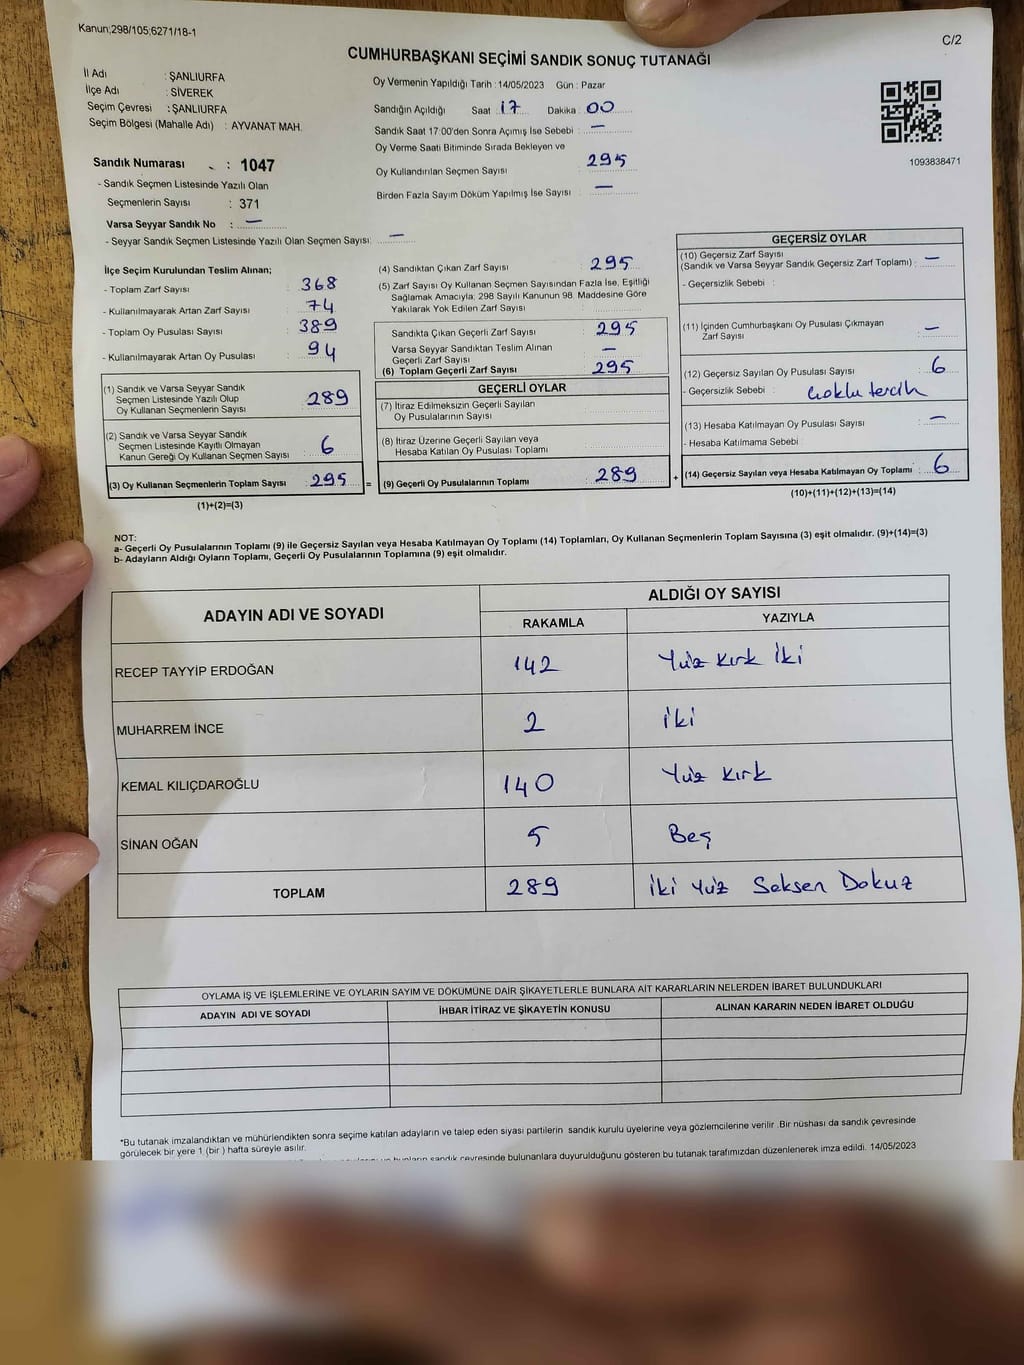 Kanun;298/105;6271/18-1
C/2
CUMHURBAŞKANI SEÇİMİ SANDIK SONUÇ TUTANAĞI
İl Adı : ŞANLIURFA
İlçe Adı : SİVEREK
Seçim Çevresi : ŞANLIURFA
Seçim Bölgesi (Mahalle Adı) : AYVANAT MAH.
Sandık Numarası : 1047
- Sandık Seçmen Listesinde Yazılı Olan
Seçmenlerin Sayısı : 371
Varsa Seyyar Sandık No : —
- Seyyar Sandık Seçmen Listesinde Yazılı Olan Seçmen Sayısı: —
Oy Vermenin Yapıldığı Tarih : 14/05/2023 Gün : Pazar
Sandığın Açıldığı Saat 17 Dakika : 00
Sandık Saat 17:00'den Sonra Açımış İse Sebebi : —
Oy Verme Saati Bitiminde Sırada Bekleyen ve
Oy Kullandırılan Seçmen Sayısı : 295
Birden Fazla Sayım Döküm Yapılmış İse Sayısı : —
1093838471
İlçe Seçim Kurulundan Teslim Alınan;
- Toplam Zarf Sayısı : 368
- Kullanılmayarak Artan Zarf Sayısı : 74
- Toplam Oy Pusulası Sayısı : 389
- Kullanılmayarak Artan Oy Pusulası : 94
(1) Sandık ve Varsa Seyyar Sandık
Seçmen Listesinde Yazılı Olup
Oy Kullanan Seçmenlerin Sayısı : 289
(2) Sandık ve Varsa Seyyar Sandık
Seçmen Listesinde Kayıtlı Olmayan
Kanun Gereği Oy Kullanan Seçmen Sayısı : 6
(3) Oy Kullanan Seçmenlerin Toplam Sayısı : 295
(1)+(2)=(3)
(4) Sandıktan Çıkan Zarf Sayısı : 295
(5) Zarf Sayısı Oy Kullanan Seçmen Sayısından Fazla İse, Eşitliği
Sağlamak Amacıyla; 298 Sayılı Kanunun 98. Maddesine Göre
Yakılarak Yok Edilen Zarf Sayısı :
Sandıkta Çıkan Geçerli Zarf Sayısı : 295
Varsa Seyyar Sandıktan Teslim Alınan
Geçerli Zarf Sayısı : —
(6) Toplam Geçerli Zarf Sayısı : 295
GEÇERLİ OYLAR
(7) İtiraz Edilmeksizin Geçerli Sayılan
Oy Pusulalarının Sayısı :
(8) İtiraz Üzerine Geçerli Sayılan veya
Hesaba Katılan Oy Pusulası Toplamı :
= (9) Geçerli Oy Pusulalarının Toplamı : 289 +
GEÇERSİZ OYLAR
(10) Geçersiz Zarf Sayısı
(Sandık ve Varsa Seyyar Sandık Geçersiz Zarf Toplamı) : —
- Geçersizlik Sebebi :
(11) İçinden Cumhurbaşkanı Oy Pusulası Çıkmayan
Zarf Sayısı : —
(12) Geçersiz Sayılan Oy Pusulası Sayısı : 6
- Geçersizlik Sebebi : çoklu tercih
(13) Hesaba Katılmayan Oy Pusulası Sayısı : —
- Hesaba Katılmama Sebebi :
(14) Geçersiz Sayılan veya Hesaba Katılmayan Oy Toplamı : 6
(10)+(11)+(12)+(13)=(14)
NOT:
a- Geçerli Oy Pusulalarının Toplamı (9) ile Geçersiz Sayılan veya Hesaba Katılmayan Oy Toplamı (14) Toplamları, Oy Kullanan Seçmenlerin Toplam Sayısına (3) eşit olmalıdır. (9)+(14)=(3)
b- Adayların Aldığı Oyların Toplamı, Geçerli Oy Pusulalarının Toplamına (9) eşit olmalıdır.
ADAYIN ADI VE SOYADI ALDIĞI OY SAYISI
RAKAMLA YAZIYLA
RECEP TAYYİP ERDOĞAN 142 Yüz Kırk İki
MUHARREM İNCE 2 İki
KEMAL KILIÇDAROĞLU 140 Yüz Kırk
SİNAN OĞAN 5 Beş
TOPLAM 289 İki Yüz Seksen Dokuz
OYLAMA İŞ VE İŞLEMLERİNE VE OYLARIN SAYIM VE DÖKÜMÜNE DAİR ŞİKAYETLERLE BUNLARA AİT KARARLARIN NELERDEN İBARET BULUNDUKLARI
ADAYIN ADI VE SOYADI İHBAR İTİRAZ VE ŞİKAYETİN KONUSU ALINAN KARARIN NEDEN İBARET OLDUĞU
*Bu tutanak imzalandıktan ve mühürlendikten sonra seçime katılan adayların ve talep eden siyasi partilerin sandık kurulu üyelerine veya gözlemcilerine verilir .Bir nüshası da sandık çevresinde
görülecek bir yere 1 (bir ) hafta süreyle asılır.
sandık çevresinde bulunanlara duyurulduğunu gösteren bu tutanak tarafımızdan düzenlenerek imza edildi. 14/05/2023